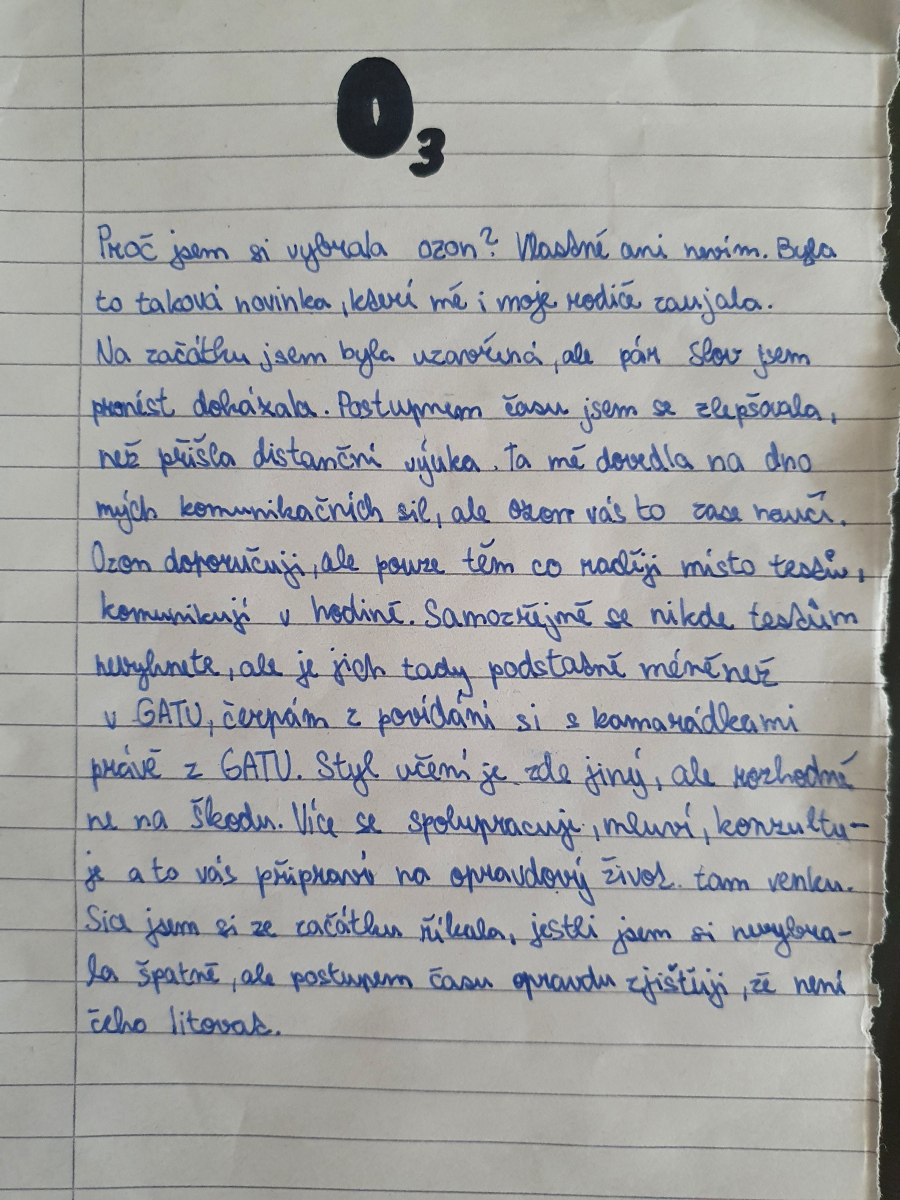 O3
Proč jsem si vybrala ozon? Vlastně ani nevím. Byla
to taková novinka, která mě i moje rodiče zaujala.
Na začátku jsem byla uzavřená, ale pár slov jsem
pronést dokázala. Postupném času jsem se zlepšovala,
než přišla distanční výuka. Ta mě dovedla na dno
mých komunikačních sil, ale ozon vás to zase naučí.
Ozon doporučuji, ale pouze těm co raději místo testů,
komunikují v hodině. Samozřejmě se nikde testům
nevyhnete, ale je jich tady podstatně méně než
v GATU, čerpám z povídání si s kamarádkami
právě z GATU. Styl učení je zde jiný, ale rozhodně
ne na škodu. Více se spolupracuje, mluví, konzultu-
je a to vás připraví na opravdový život tam venku.
Sice jsem si ze začátku říkala, jestli jsem si nevybra-
la špatně, ale postupem času opravdu zjišťuji, že není
čeho litovat.